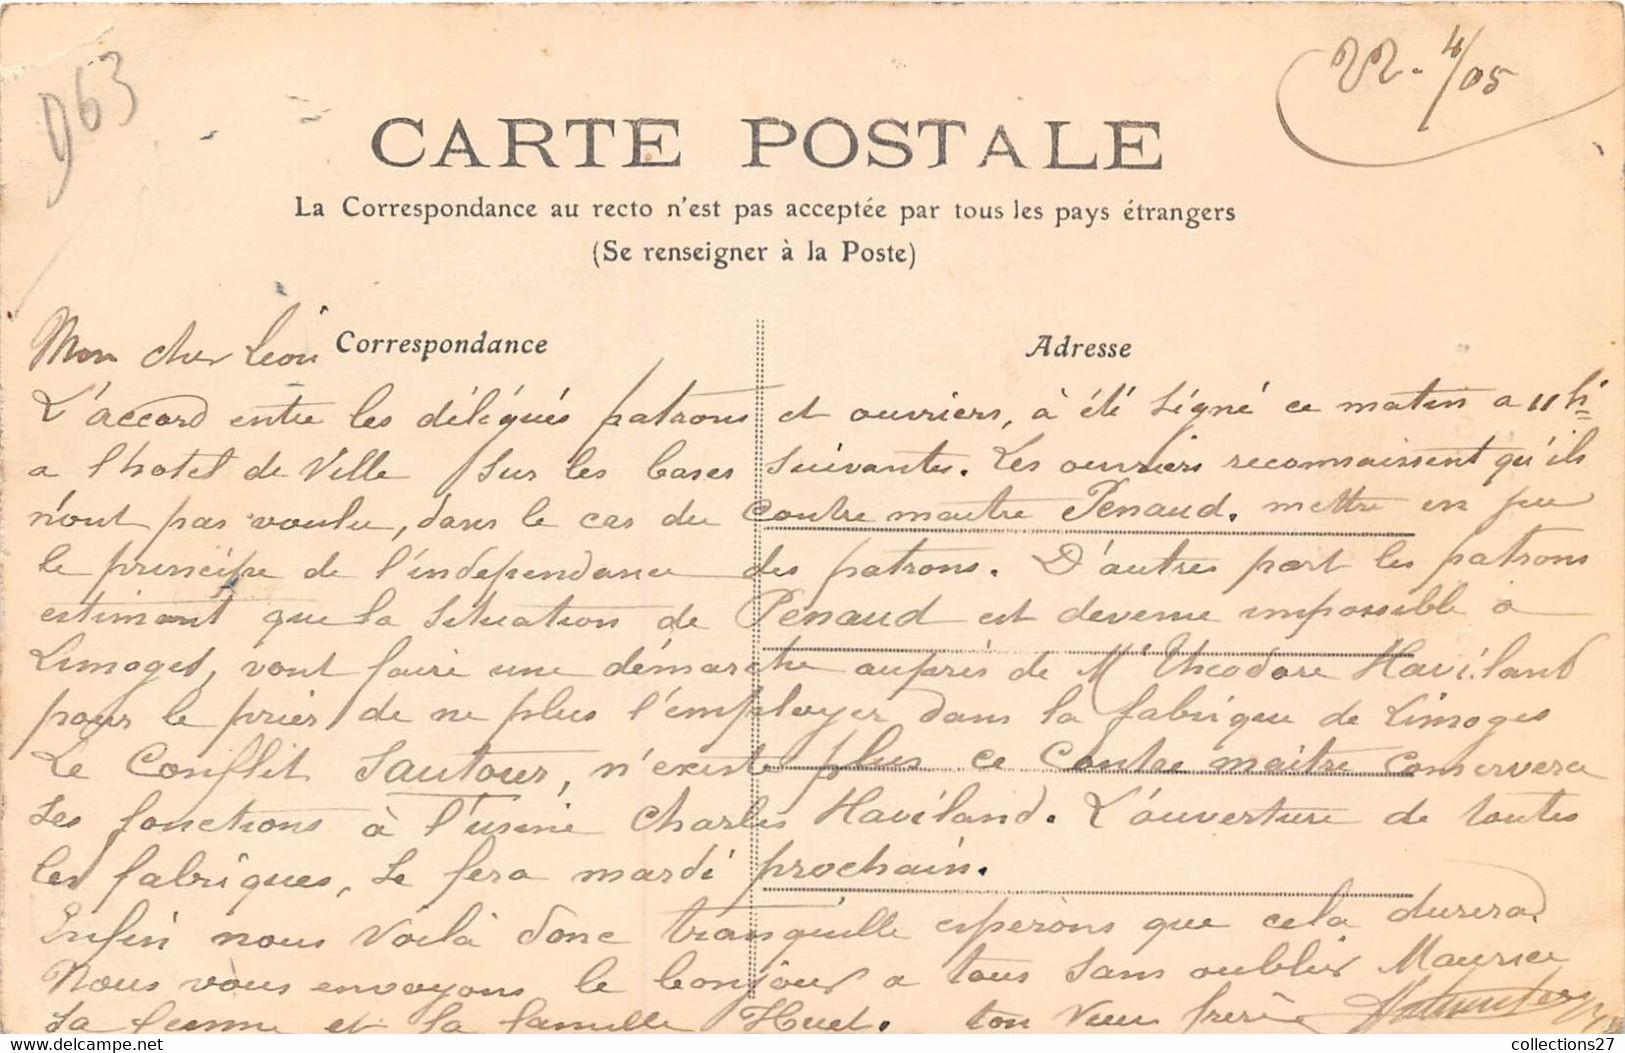 D63
22-4/05
CARTE POSTALE
La Correspondance au recto n'est pas acceptée par tous les pays étrangers
(Se renseigner à la Poste)
Correspondance
Adresse
Mon cher Léon
L'accord entre les délégués patrons et ouvriers, à été signé ce matin a 11h
a l'hotel de Ville sur les bases suivantes. Les ouvriers reconnaissent qu'ils
n'ont pas voulu, dans le cas du contre maitre Penaud. mettre en jeu
le principe de l'indépendance des patrons. D'autres part les patrons
estimant que la situation de Penaud est devenue impossible a
Limoges, vont faire une démarche auprès de Mr Théodore Haviland
pour le prier de ne plus l'employer dans la fabrique de Limoges
Le Conflit Sautour, n'existe plus ce Contre maitre conservera
ses fonctions à l'usine Charles Haviland. L'ouverture de toutes
les fabriques, se fera mardi prochain.
Enfin nous voilà donc tranquille espérons que cela durera.
Nous vous envoyons le bonjour a tous sans oublier Maurice
sa femme et la famille Huet. ton vieux frère
collections27